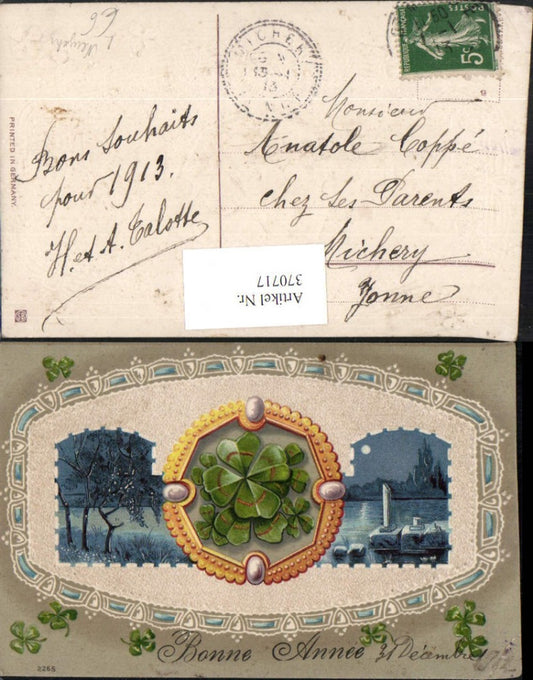 Bons Souhaits
pour 1913.
H. et A. Talotte
PRINTED IN GERMANY.
MICHERY
RÉPUBLIQUE FRANÇAISE
POSTES
5c
Monsieur
Anatole Coppé
chez Ses Parents
Michery
Yonne
Artikel Nr.
370717
Bonne Année 31 Décembre
2265